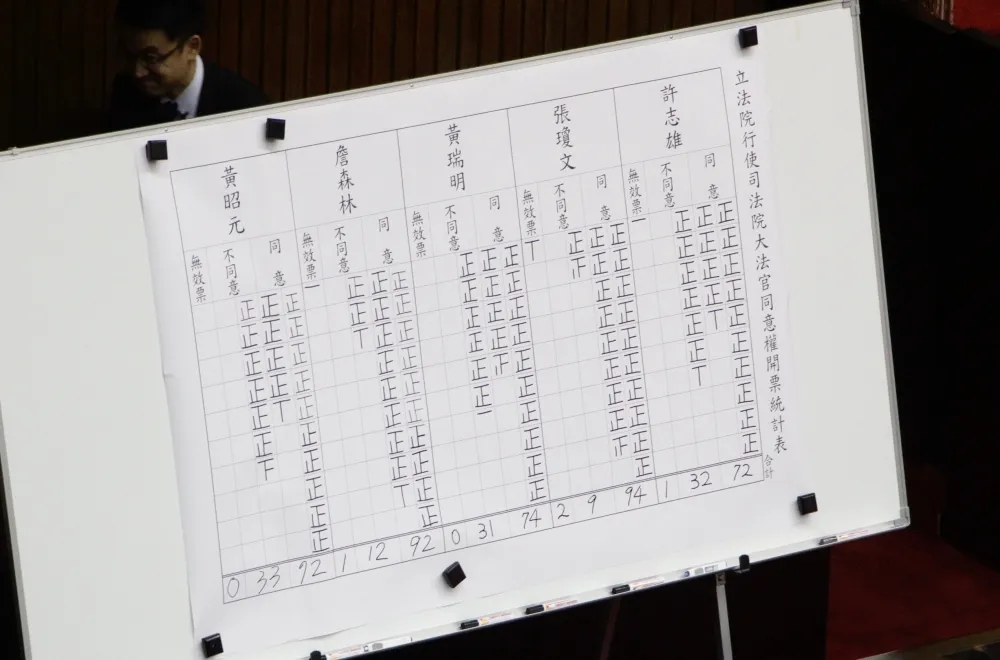 立法院行使司法院大法官同意權開票統計表
合計
許志雄
同意
正正正正正正正正正正
正正正正丅
72
不同意
正正正正正正丅
32
無效票
一
1
張瓊文
同意
正正正正正正正正正正
正正正正正正正正
94
不同意
正
9
無效票
丅
2
黃瑞明
同意
正正正正正正正正正正
正正正正
74
不同意
正正正正正正一
31
無效票
0
詹森林
同意
正正正正正正正正正正
正正正正正正正正丅
92
不同意
正正丅
12
無效票
一
1
黃昭元
同意
正正正正正正正正正正
正正正正丅
72
不同意
正正正正正正下
33
無效票
0